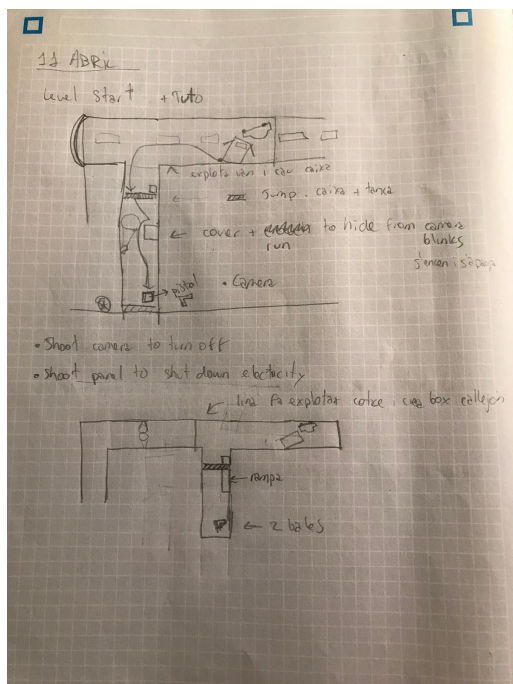 11 ABRIL
Level Start + Tuto
^ explota van i cau caixa
← Jump. caixa + tanca
← cover + to hide from camera
run blinks
s'encen i s'apaga
→ pistol
• Camera
• Shoot camera to turn off
• Shoot panel to shut down electocity
fa explotar cotxe i box callejon
← rampa
← 2 bales